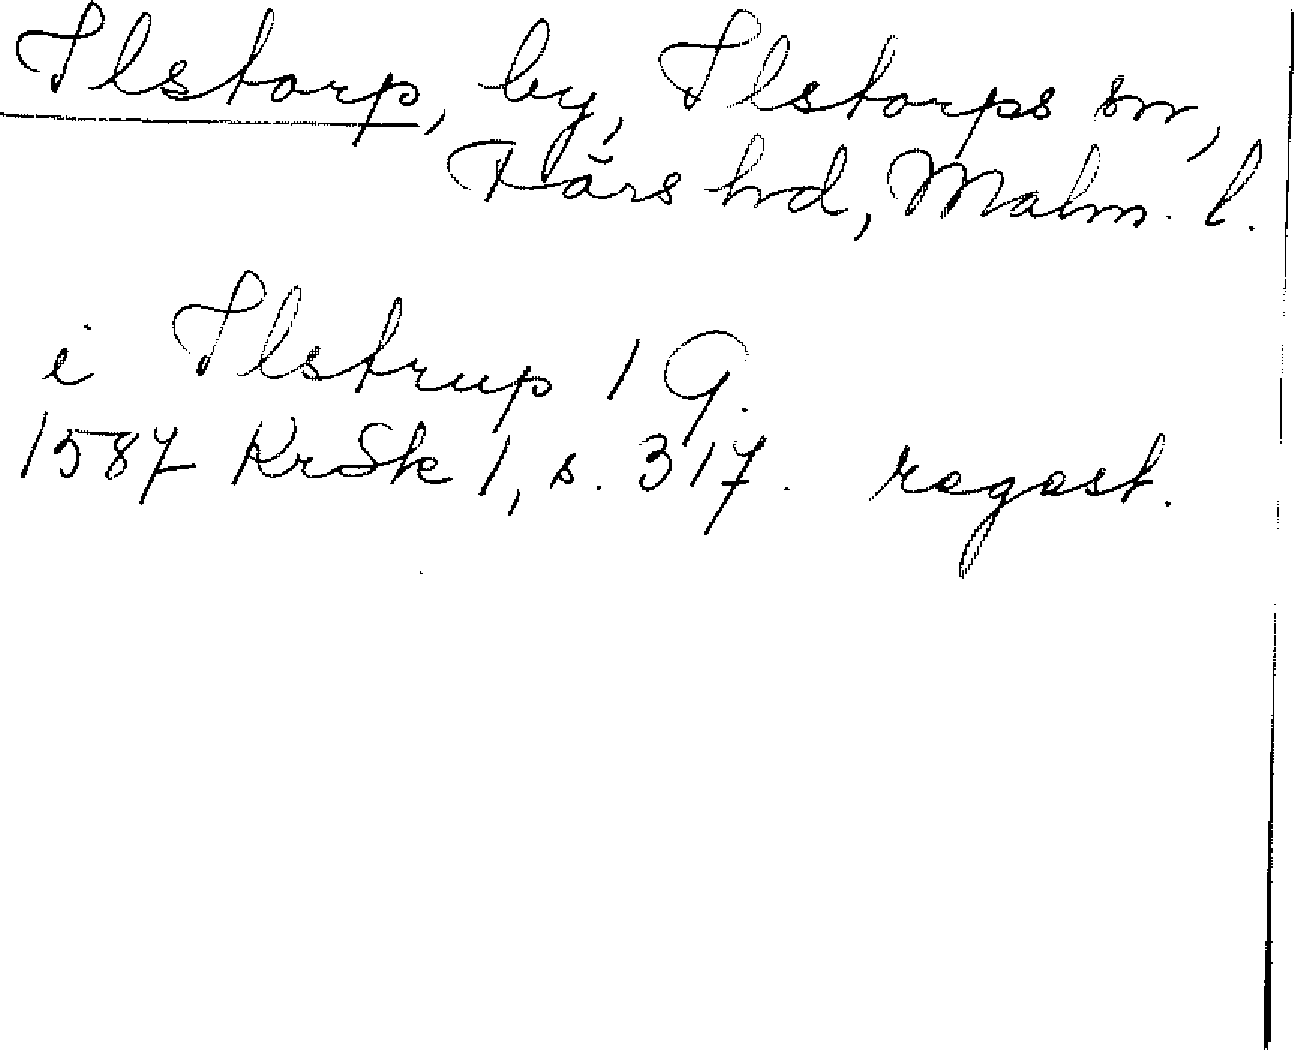 Ilstorp, by, Ilstorps sn,
Färs hd, Malm. l.
i Ilstrup 1 G.
1587 KrSk 1, s. 317. ragost.